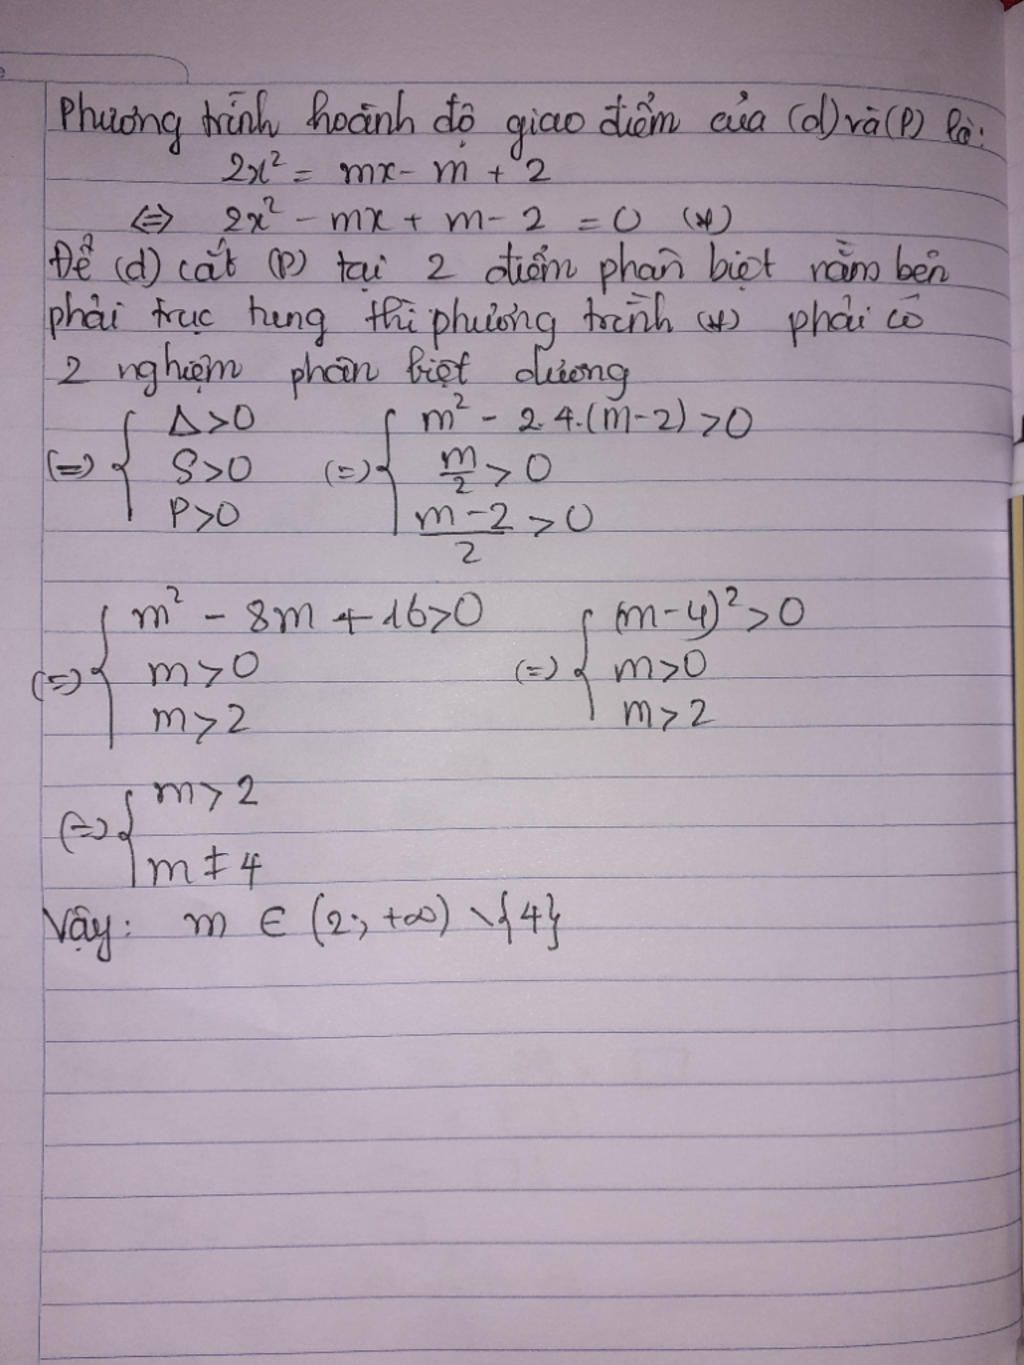 Phương trình hoành độ giao điểm của (d) và (P) là:
2x² = mx - m + 2
⇔ 2x² - mx + m - 2 = 0 (*)
Để (d) cắt (P) tại 2 điểm phân biệt nằm bên
phải trục tung thì phương trình (*) phải có
2 nghiệm phân biệt dương
(=) { Δ>0 ; S>0 ; P>0 (=) { m² - 2.4.(m-2) >0 ; m/2 > 0 ; (m-2)/2 > 0
(=) { m² - 8m + 16>0 ; m>0 ; m>2 (=) { (m-4)² >0 ; m>0 ; m>2
(=) { m>2 ; m ≠ 4
Vậy: m ∈ (2; +∞) \ {4}